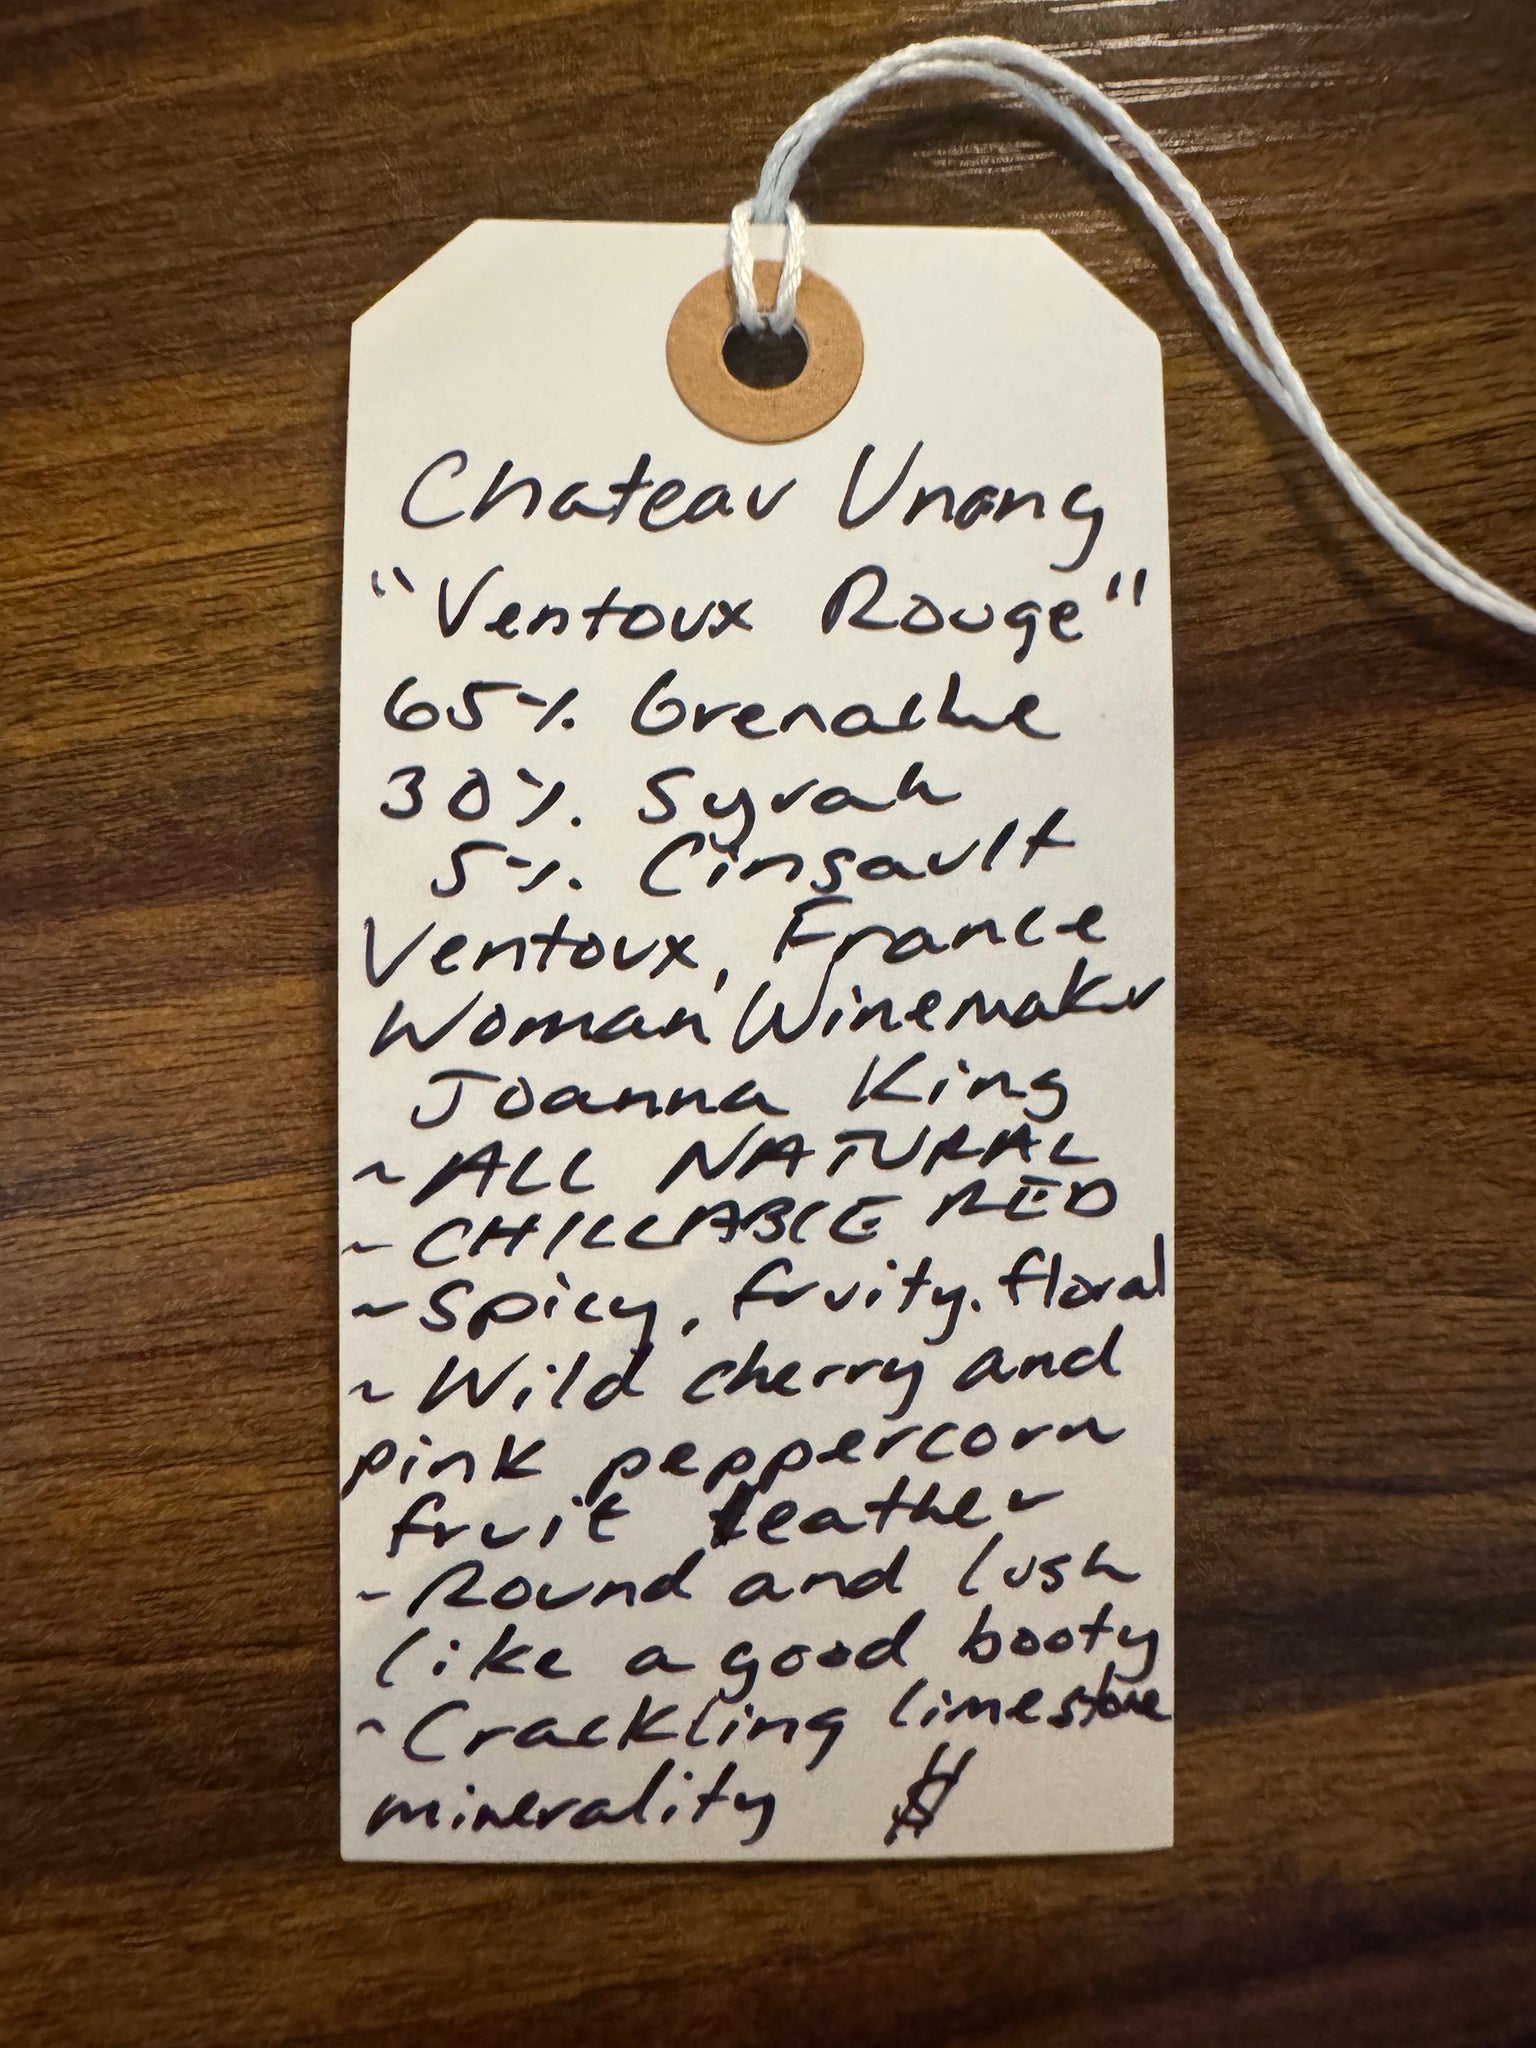 Chateau Unang
"Ventoux Rouge"
65% Grenache
30% Syrah
5% Cinsault
Ventoux, France
Woman Winemaker
Joanna King
~ ALL NATURAL
~ CHILLABLE RED
~ Spicy, fruity, floral
~ Wild cherry and
pink peppercorn
fruit leather
~ Round and lush
like a good booty
~ Crackling limestone
minerality $